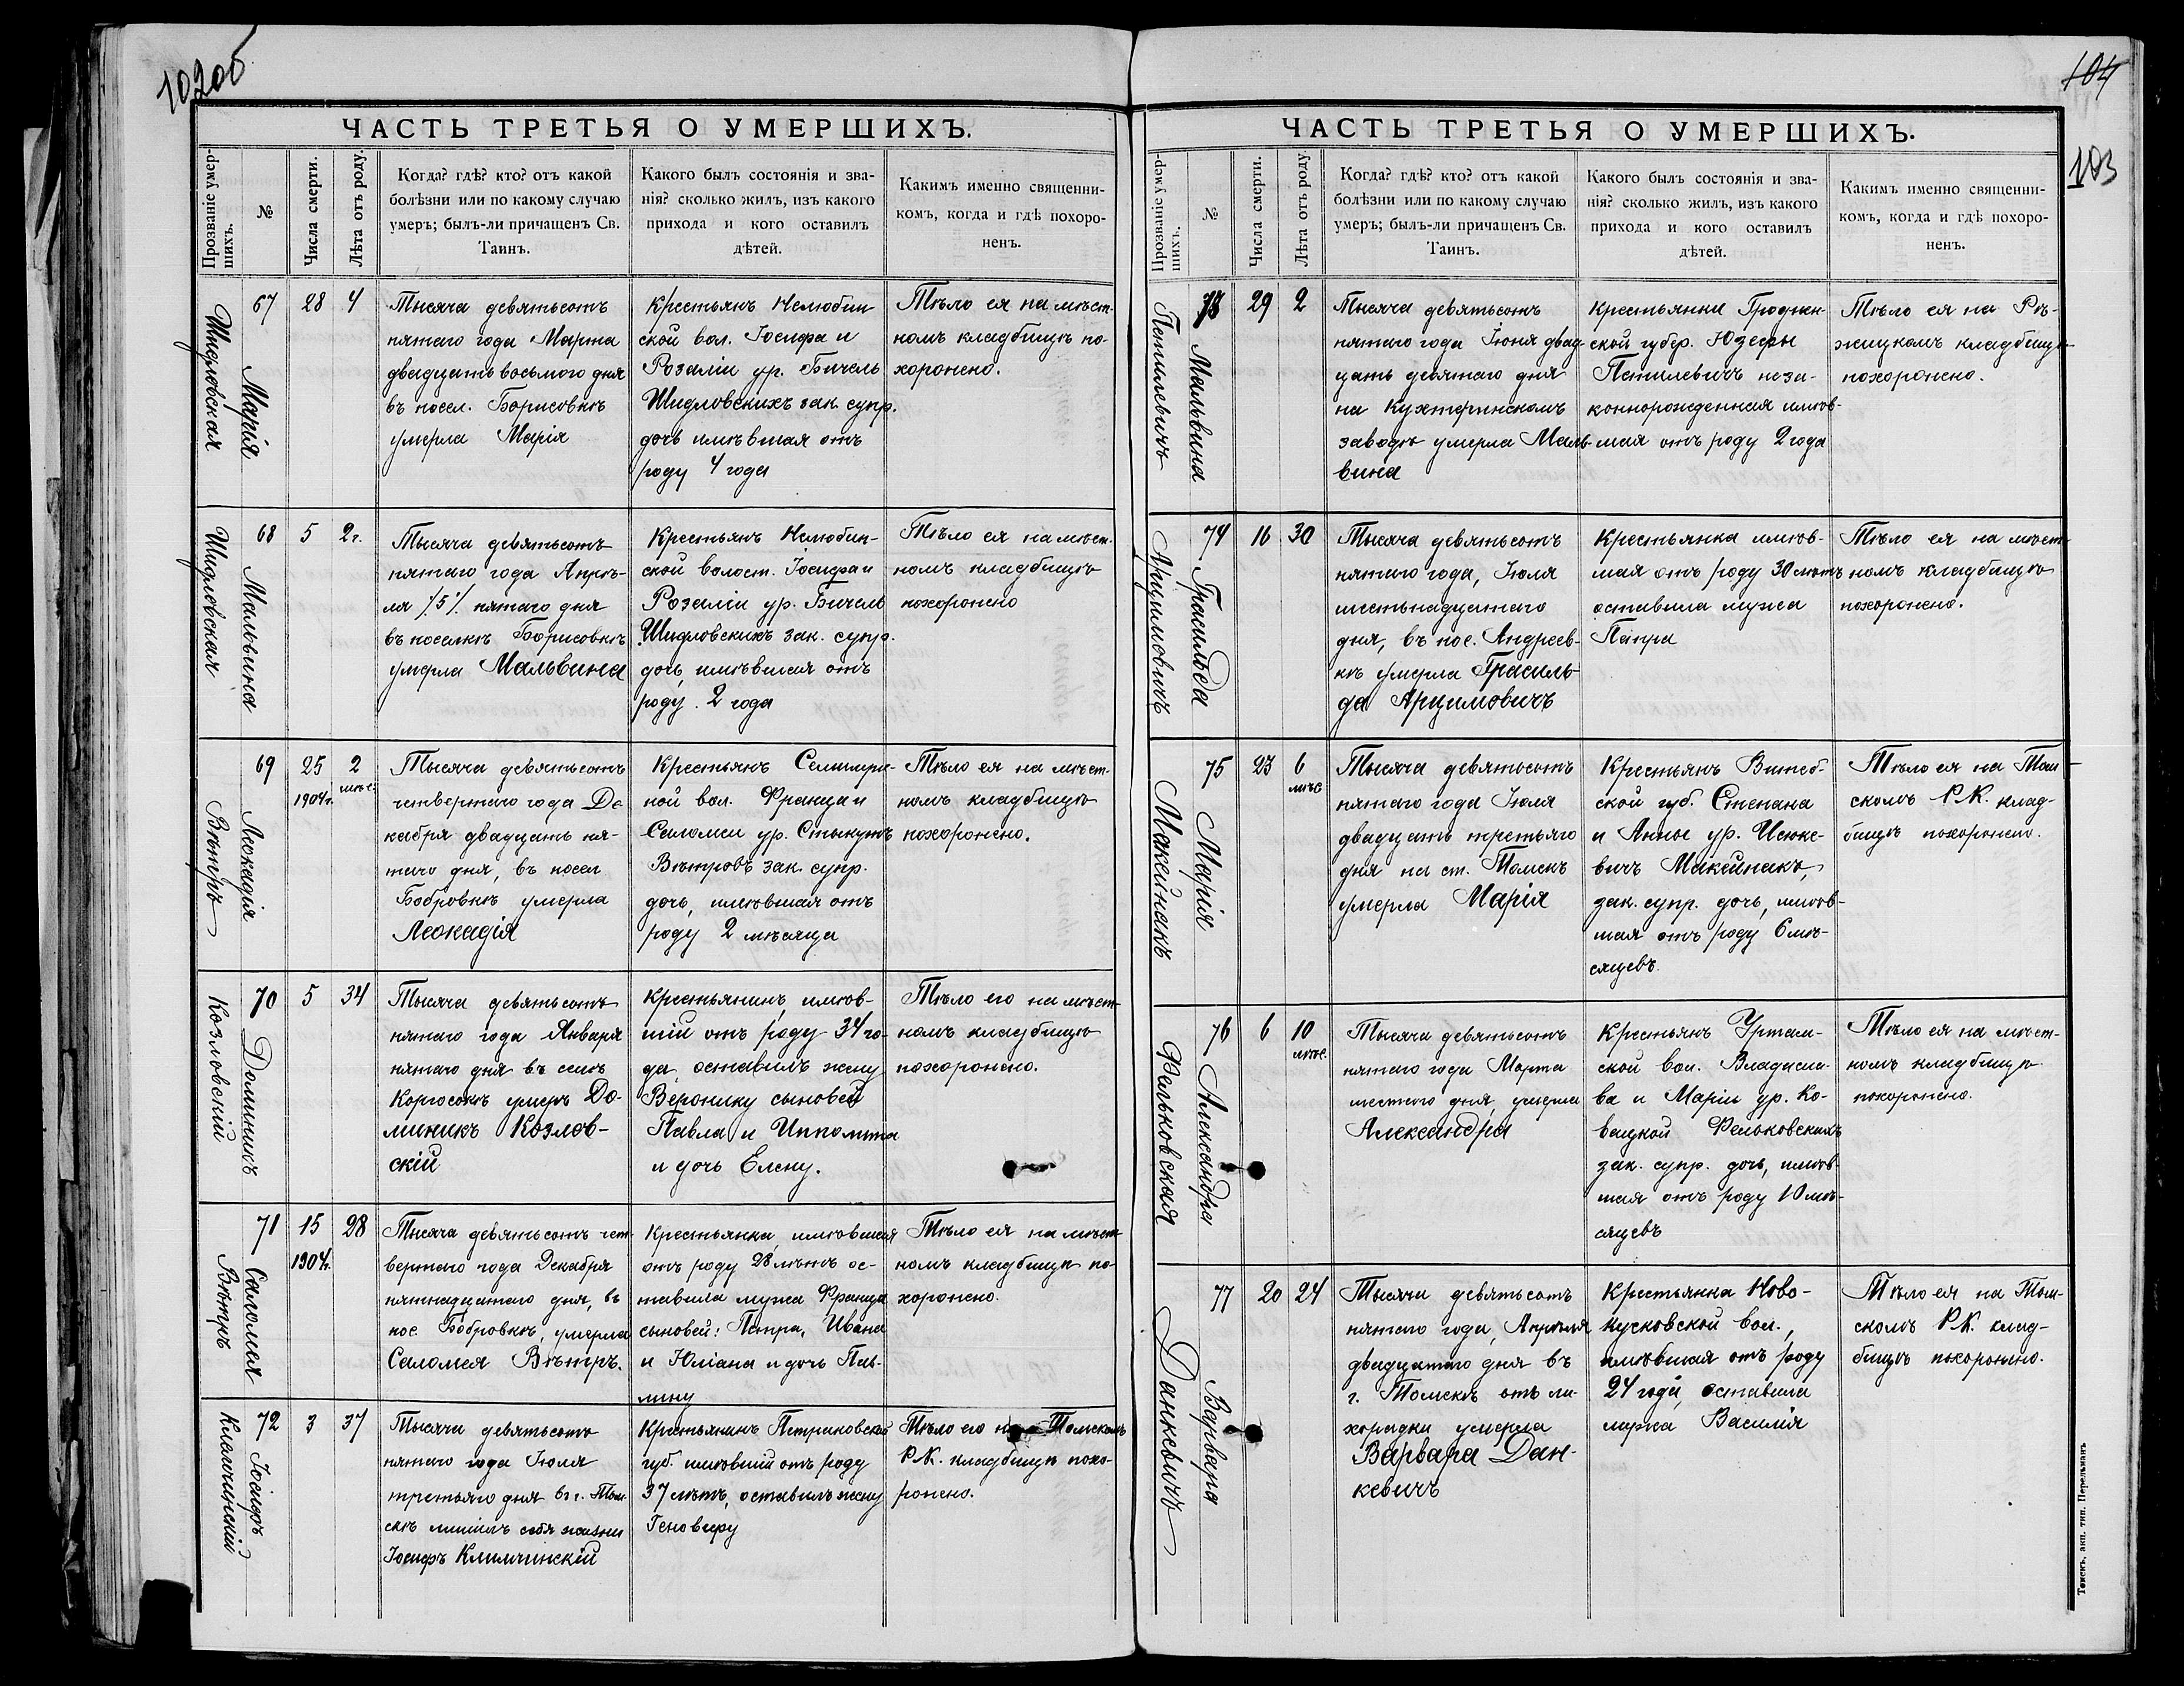 102об
ЧАСТЬ ТРЕТЬЯ О УМЕРШИХЪ.
Прозваніе умер-
шихъ.
№
Числа смерти.
Лѣта отъ роду.
Когда? гдѣ? кто? отъ какой
болѣзни или по какому случаю
умеръ; былъ-ли причащенъ Св.
Таинъ.
Какого былъ состоянія и зва-
нія? сколько жилъ, изъ какого
прихода и кого оставилъ
дѣтей.
Какимъ именно священни-
комъ, когда и гдѣ похоро-
ненъ.
Шидловская
Марія
67
28
4
Тысяча девятьсотъ
пятаго года Марта
двадцать восьмого дня
въ посел. Борисовкѣ
умерла Марія
Крестьянъ Нелюбин
ской вол. Іосифа и
Розаліи ур. Бичель
Шидловскихъ зак. супр.
дочь имѣвшая отъ
роду 4 года
Тѣло ея на мѣст-
номъ кладбищѣ по-
хоронено.
Шидловская
Мальвина
68
5
2 г.
Тысяча девятьсотъ
пятаго года Апрѣ-
ля /5/ пятаго дня
въ поселкѣ Борисовкѣ
умерла Мальвина
Крестьянъ Нелюбин-
ской волост. Іосифа и
Розаліи ур. Бичель
Шидловскихъ зак. супр.
дочь, имѣвшая отъ
роду 2 года
Тѣло ея на мѣст-
номъ кладбищѣ
похоронено
Вѣтръ
Леокадія
69
25
1904 г.
2
мѣс.
Тысяча девятьсотъ
четвертаго года Де
кабря двадцать пя-
таго дня, въ посел
Бобровкѣ умерла
Леокадія
Крестьянъ
ной вол. Франца и
Саломеи ур.
Вѣтровъ зак. супр.
дочь, имѣвшая отъ
роду 2 мѣсяца
Тѣло ея на мѣст-
номъ кладбищѣ
похоронено.
Козловскій
Доминикъ
70
5
34
Тысяча девятьсотъ
пятаго года Января
пятаго дня въ селѣ
умеръ До-
миникъ Козлов-
скій
Крестьянинъ, имѣв-
шій отъ роду 34 го-
да, оставилъ жену
Веронику сыновей
Павла и Ипполита
и дочь Елену.
Тѣло его на мѣст-
номъ кладбищѣ
похоронено.
Вѣтръ
Саломея
71
15
1904 г.
28
Тысяча девятьсотъ чет-
вертаго года Декабря
пятнадцатаго дня, въ
пос. Бобровкѣ, умерла
Саломея Вѣтръ.
Крестьянка, имѣвшая
отъ роду 28 лѣтъ ос-
тавила мужа Франца
сыновей: Петра, Ивана
и Юліана и дочь Пав-
лину
Тѣло ея на мѣст-
номъ кладбищѣ по-
хоронено.
Климчинскій
Іосифъ
72
3
37
Тысяча девятьсотъ
пятаго года Іюля
третьяго дня въ г. Том-
скѣ лишилъ себя жизни
Іосифъ Климчинскій
Крестьянинъ Петроковской
губ. имѣвшій отъ роду
37 лѣтъ, оставилъ жену
Геновефу
Тѣло его на Томскомъ
Р.К. кладбищѣ похо-
ронено.
104
103
ЧАСТЬ ТРЕТЬЯ О УМЕРШИХЪ.
Прозваніе умер-
шихъ.
№
Числа смерти.
Лѣта отъ роду.
Когда? гдѣ? кто? отъ какой
болѣзни или по какому случаю
умеръ; былъ-ли причащенъ Св.
Таинъ.
Какого былъ состоянія и зва-
нія? сколько жилъ, изъ какого
прихода и кого оставилъ
дѣтей.
Какимъ именно священни-
комъ, когда и гдѣ похоро-
ненъ.
Петилевичъ
Мальвина
73
29
2
Тысяча девятьсотъ
пятаго года Іюня двад-
цать девятаго дня
на Кухтеринскомъ
заводѣ умерла Маль-
вина
Крестьянки Гроднен-
ской губер. Юзефы
Петилевичъ неза-
коннорожденная имѣв-
шая отъ роду 2 года
Тѣло ея на
кладбищѣ
похоронено.
Арцимовичъ
Грасильда
74
16
30
Тысяча девятьсотъ
пятаго года, Іюля
шестьнадцатаго
дня, въ пос. Андреев-
кѣ умерла Грасиль-
да Арцимовичъ
Крестьянка имѣв-
шая отъ роду 30 лѣтъ
оставила мужа
Петра
Тѣло ея на мѣст-
номъ кладбищѣ
похоронено.
Макейнакъ
Марія
75
23
6
мѣс
Тысяча девятьсотъ
пятаго года Іюля
двадцать третьяго
дня на ст. Томскъ
умерла Марія
Крестьянъ Витеб-
ской губ. Степана
и Анны ур.
вичъ Макейнакъ,
зак. супр. дочь, имѣв-
шая отъ роду 6 мѣ-
сяцевъ.
Тѣло ея на Том-
скомъ Р.К. клад-
бищѣ похоронено.
Фельковская
Александра
76
6
10
мѣс.
Тысяча девятьсотъ
пятаго года Марта
шестаго дня, умерла
Александра
Крестьянъ Уртам-
ской вол. Владисла-
ва и Маріи ур. Ко-
вацкой Фельковскихъ
зак. супр. дочь, имѣв-
шая отъ роду 10 мѣ-
сяцевъ
Тѣло ея на мѣст-
номъ кладбищѣ
похоронено.
Данкевичъ
Варвара
77
20
24
Тысяча девятьсотъ
пятаго года, Апрѣля
двадцатаго дня въ
г. Томскѣ отъ ли-
хорадки умерла
Варвара Дан-
кевичъ
Крестьянка Ново-
кусковской вол.,
имѣвшая отъ роду
24 года, оставила
мужа Василія
Тѣло ея на Том-
скомъ Р.К. клад-
бищѣ похоронено.
Томскъ, акц. тип. Перельманъ